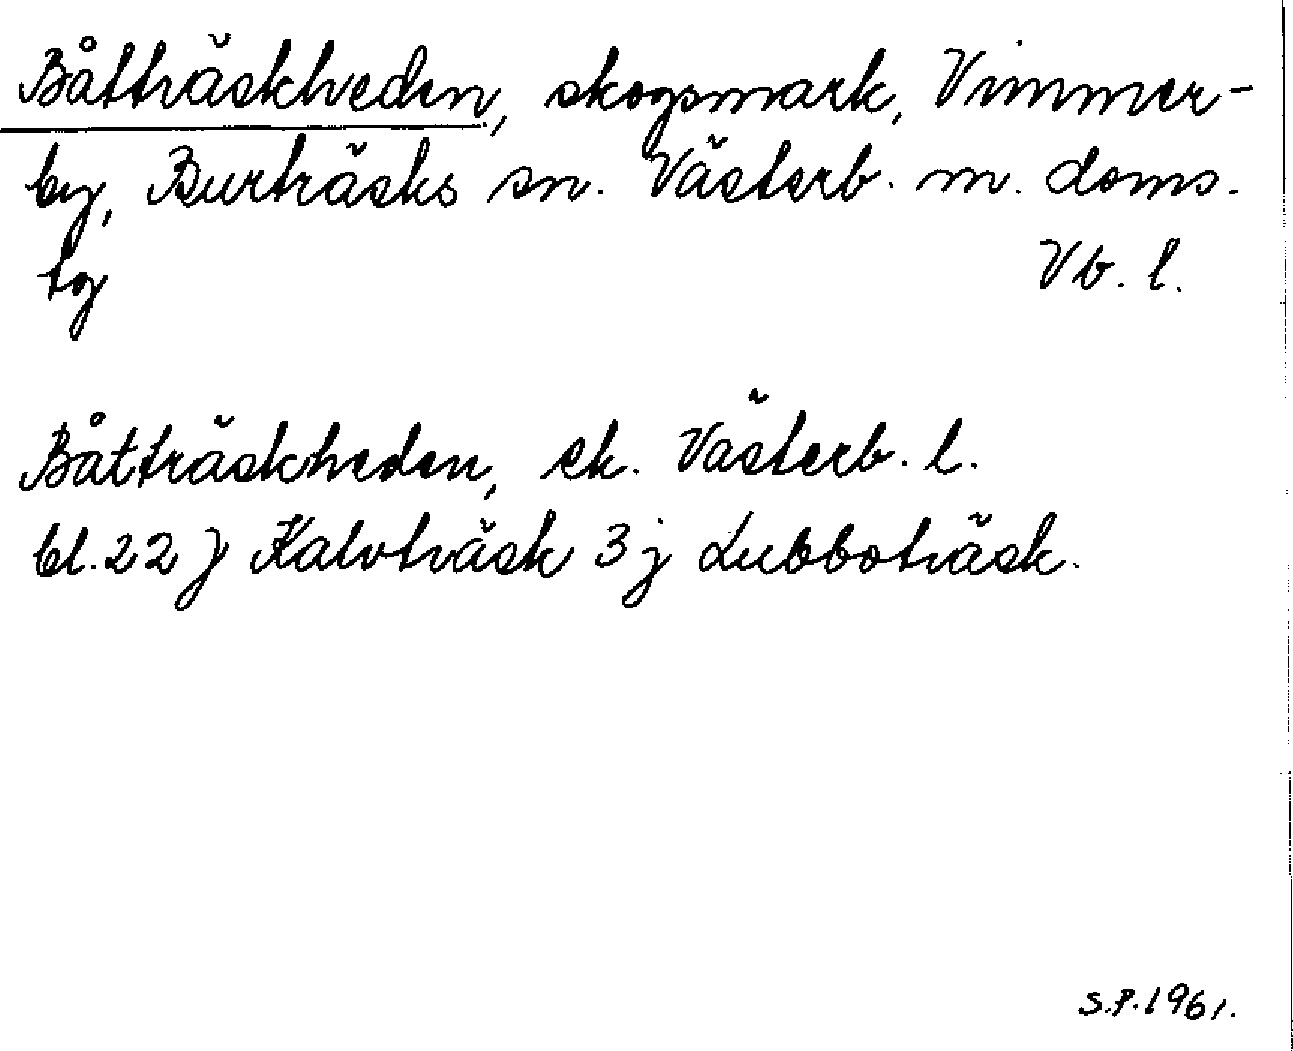 Båtträskheden, skogsmark, Vimmer-
by, Burträsks sn. Västerb. m. doms.
tg Vb. l.
Båtträskheden, ek. Västerb. l.
bl. 22 J Kalvträsk 3 j Lubboträsk.
S.P. 1961.